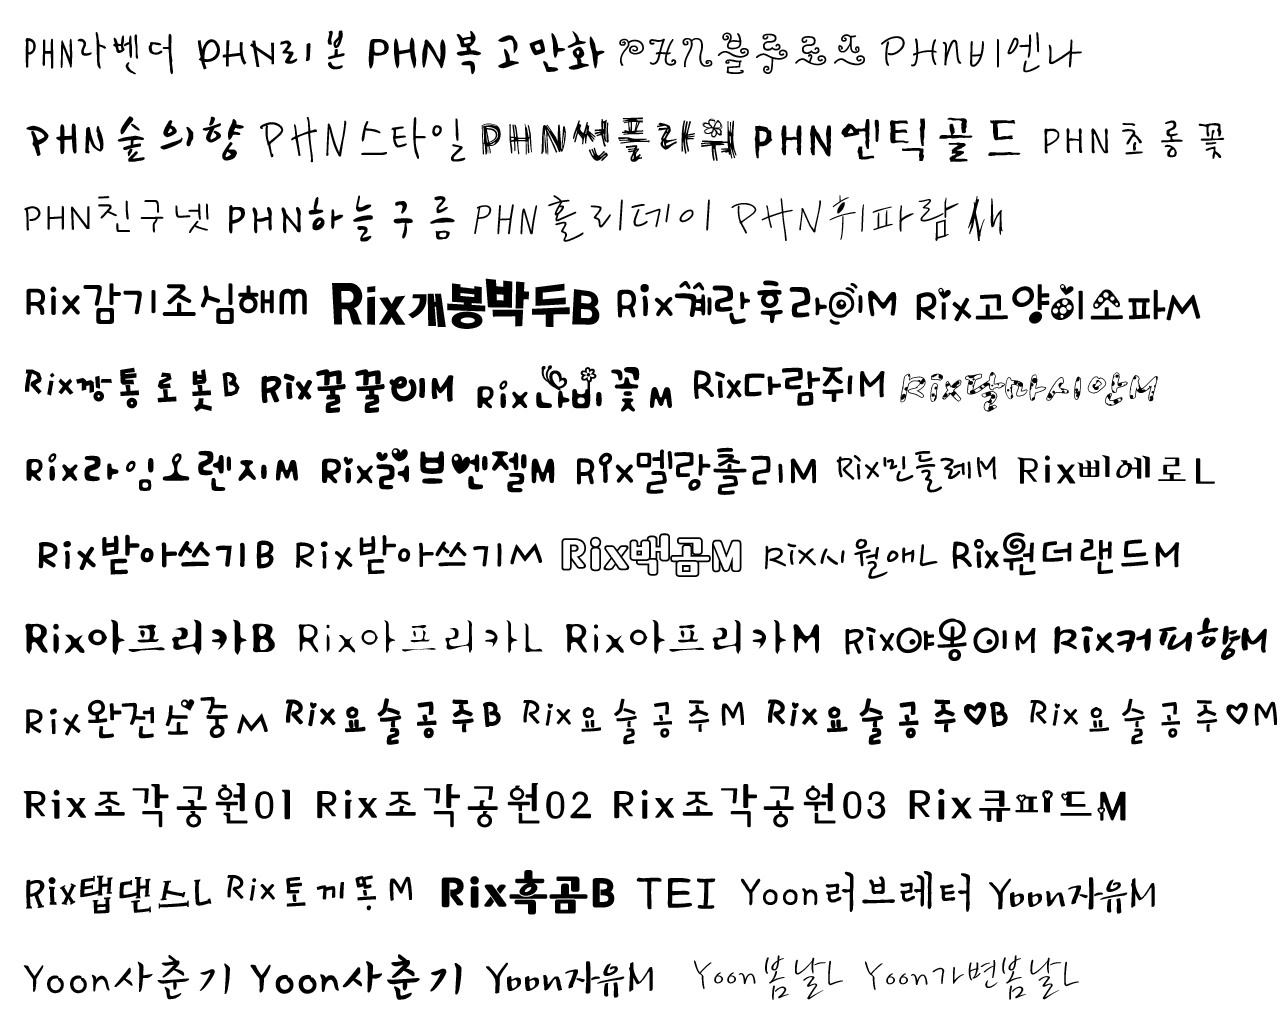 PHN라벤더 PHN리본 PHN복고만화 PHN블루로즈 PHN비엔나
PHN숲의향 PHN스타일 PHN썬플라워 PHN엔틱골드 PHN초롱꽃
PHN친구넷 PHN하늘구름 PHN홀리데이 PHN휘파람새
Rix감기조심해m Rix개봉박두B Rix계란후라이M Rix고양이소파M
Rix깡통로봇B Rix꿀꿀이M Rix나비꽃M Rix다람쥐M Rix달마시안M
Rix라임오렌지M Rix러브엔젤M Rix멜랑촐리M Rix민들레M Rix삐에로L
Rix받아쓰기B Rix받아쓰기M Rix백곰M Rix시월애L Rix원더랜드M
Rix아프리카B Rix아프리카L Rix아프리카M Rix야옹이M Rix커피향M
Rix완전소중M Rix요술공주B Rix요술공주M Rix요술공주♡B Rix요술공주♡M
Rix조각공원01 Rix조각공원02 Rix조각공원03 Rix큐피드M
Rix탭댄스L Rix토끼똥M Rix흑곰B TEI Yoon러브레터 Yoon자유M
Yoon사춘기 Yoon사춘기 Yoon자유M Yoon봄날L Yoon가변봄날L